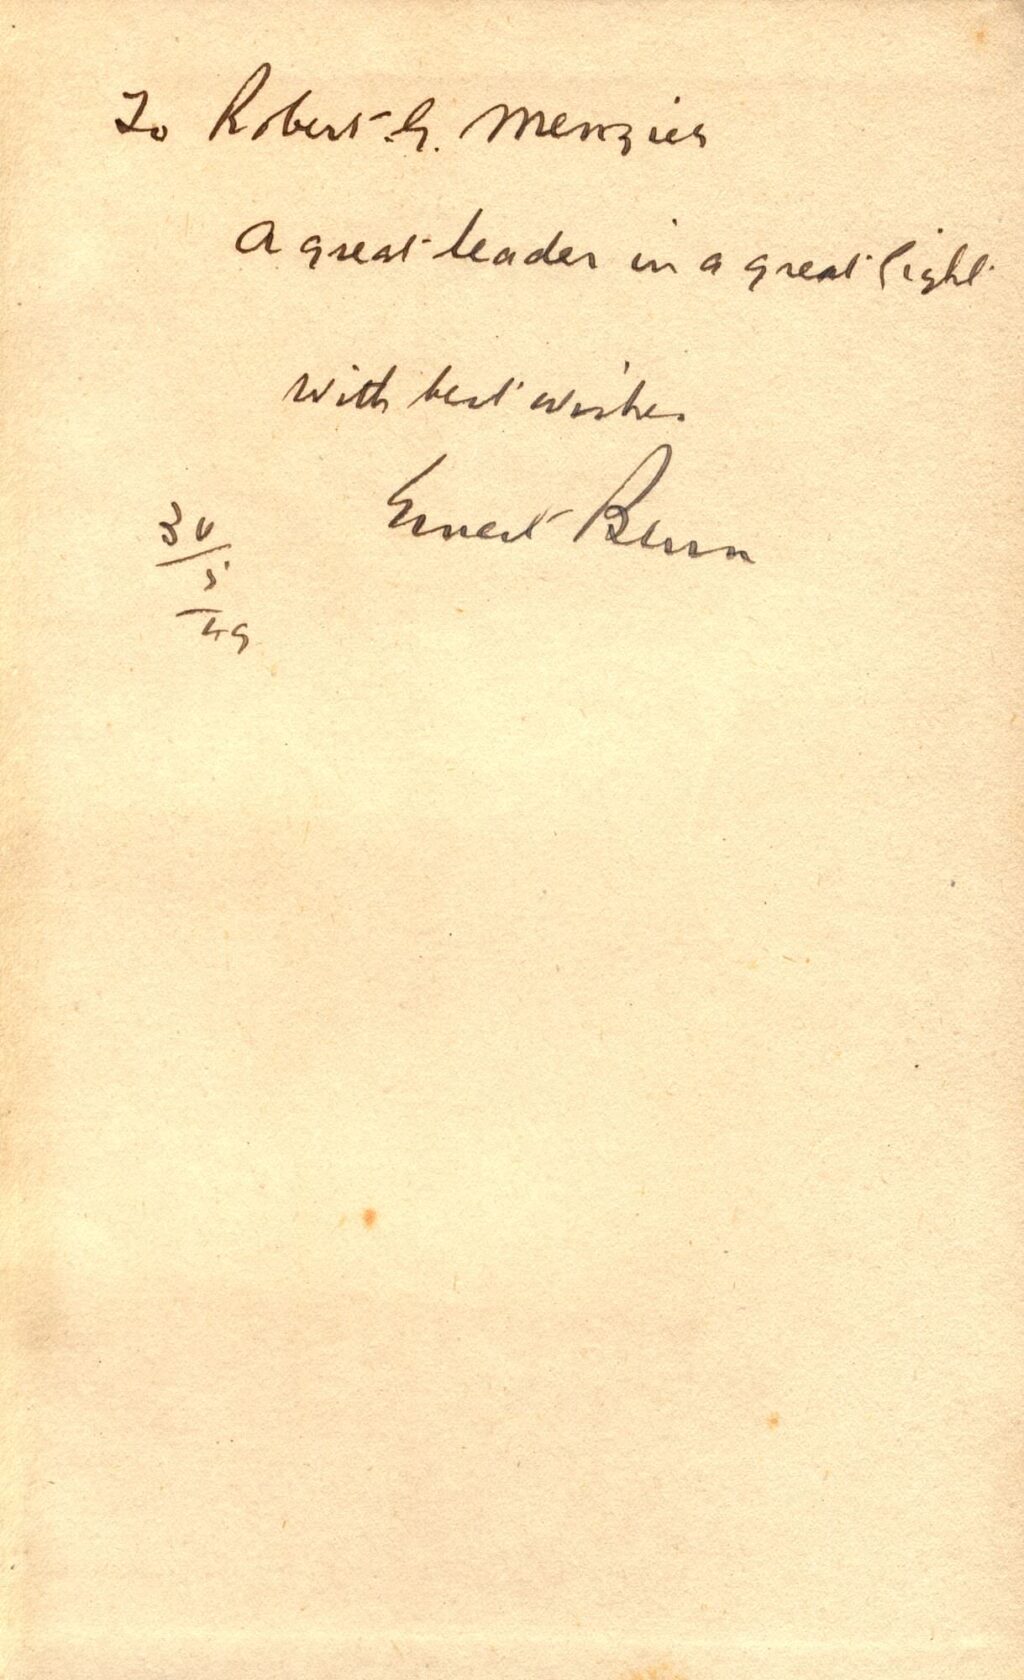 To Robert G. Menzies
A great leader in a great fight
with best wishes
Ernest Benn
30
5
49